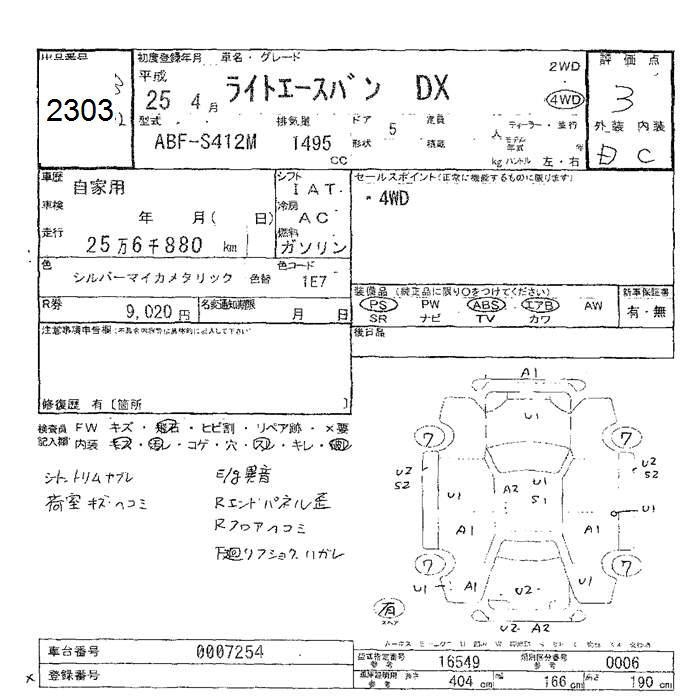 2303
初度登録年月 車名・グレード
平成
25 4 月 ライトエースバン DX
2WD
4WD
評価点
3
外装 内装
C
型式
ABF-S412M
排気量
1495
cc
ドア
5
形状
定員
積載
人
kg
ハンドル 左・右
車歴
自家用
車検
年 月( 日)
走行
25万6千880 km
シフト
IAT
冷房
AC
燃料
ガソリン
セールスポイント(正常に機能するものに限ります)
・4WD
色
シルバーマイカメタリック 色替
色コード
1E7
R券
9,020円
名変通知期限
月 日
装備品 (純正品に限り○をつけてください)
PS PW ABS エアB AW
SR ナビ TV カワ
新車保証書
有・無
後日品
修復歴 有〔箇所 〕
検査員
記入欄
FW キズ・飛石・ヒビ割・リペア跡・×要
内装 キズ・汚レ・コゲ・穴・スレ・キレ・破レ
荷室キズ・ヘコミ
E/g異音
Rエンドパネル歪
Rフロアヘコミ
下廻リフショク、ハガレ
A1
U1
7
7
U2
S2
U2
S2
U1
A2
U1
S1
U1
A1
A1
7
7
U1
A1
A1
U1
U2
有
スペア
U2 A2
車台番号
0007254
登録番号
型式指定番号
参考
16549
類別区分番号
参考
0006
参考
長さ
404 cm
166 cm
高さ
190 cm